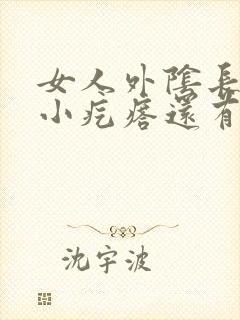 女人外陰長
小疙瘩還有
沈宇波